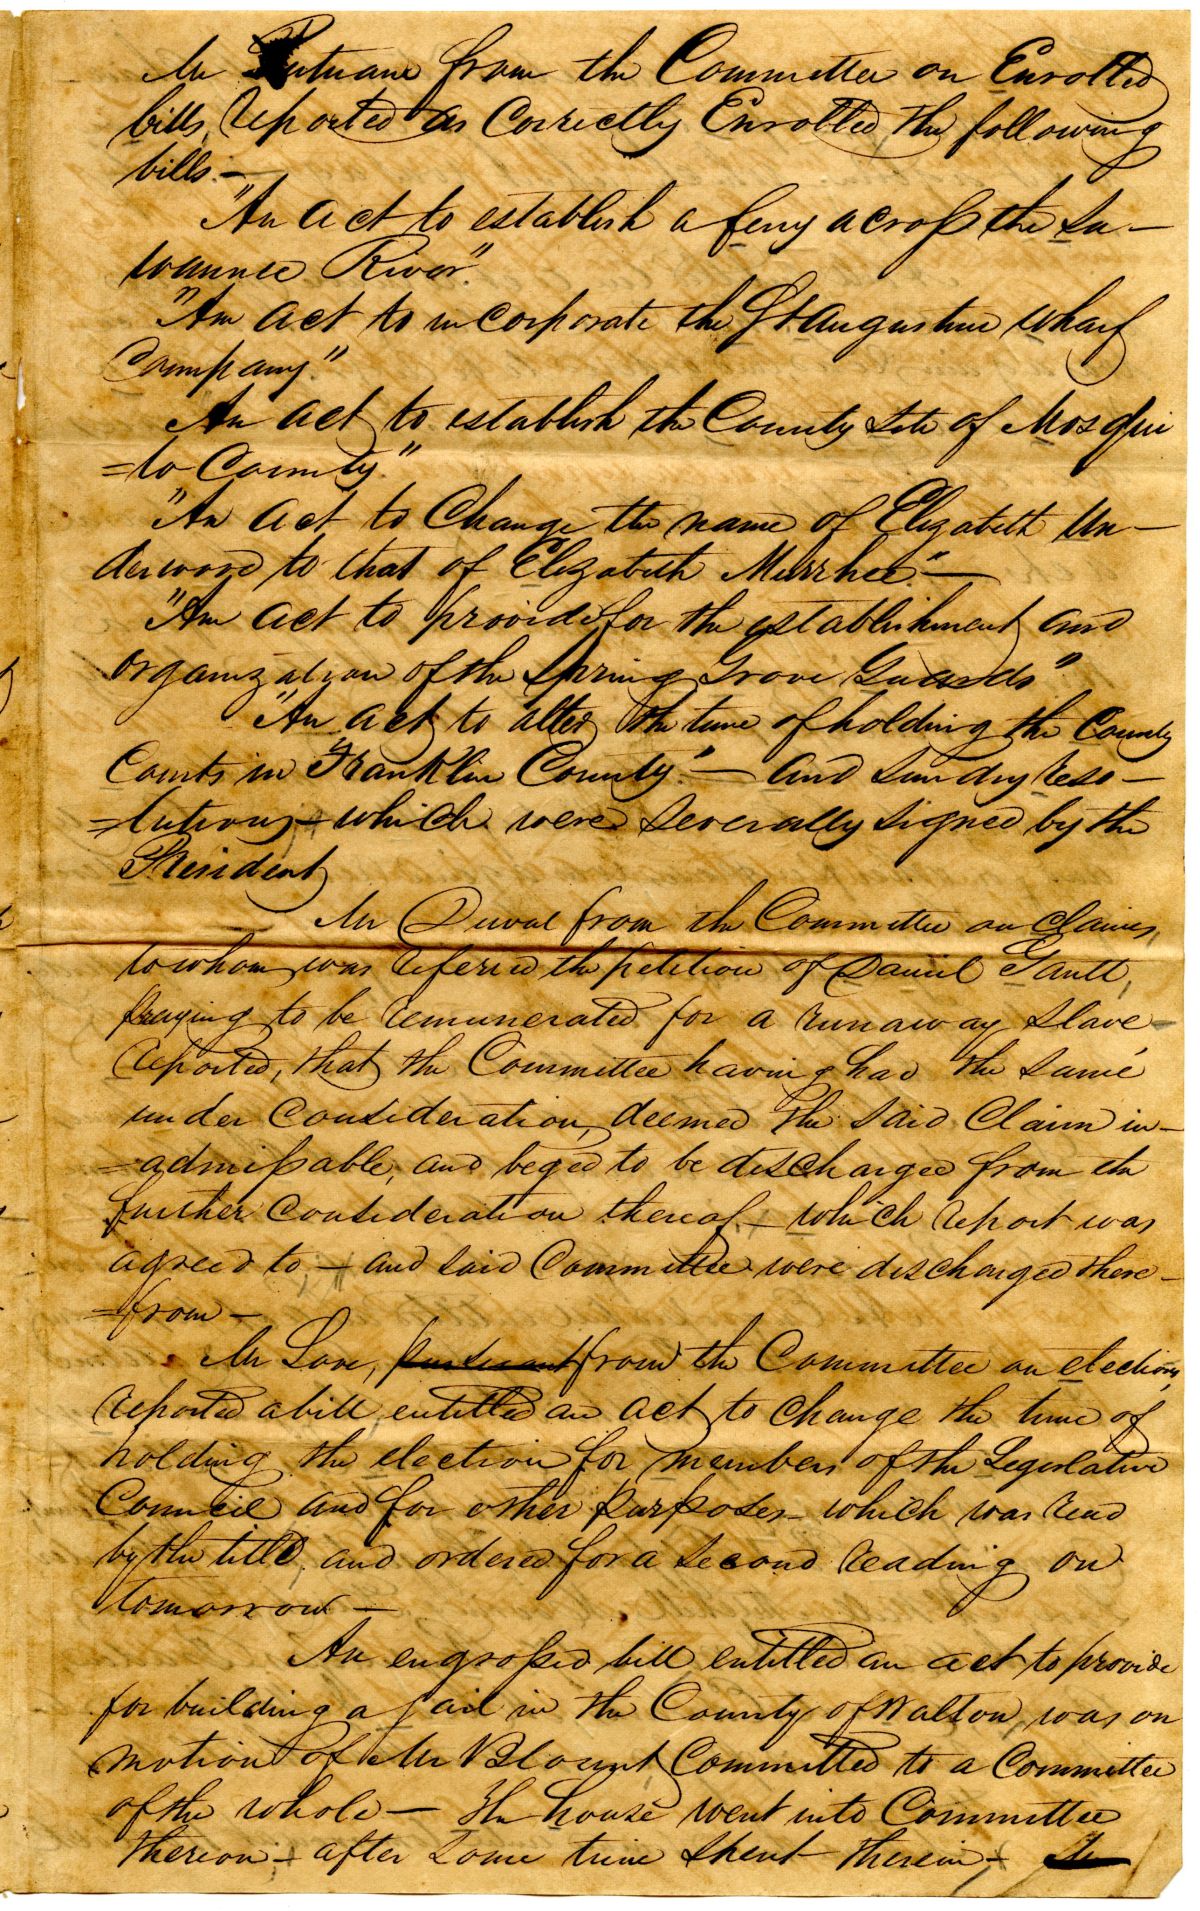 Mr Putnam from the Committee on Enrolled
bills, reported as Correctly Enrolled the following
bills.—
"An act to establish a ferry across the Su—
wannee River"
"An act to incorporate the St Augustine wharf
Company."
An act to establish the County site of Mosqui
=to County."
"An act to Change the name of Elizabeth Un—
derwood to that of Elizabeth Murrhee."—
"An act to provide for the establishment and
organization of the Spring Grove Guards"
"An act to alter the time of holding the County
Courts in Franklin County."— and sundry reso—
=lutions— which were severally signed by the
President
Mr Duval from the Committee on claims,
to whom was referred the petition of Daniel Gantt,
praying to be remunerated for a runaway slave—
reported, that the Committee having had the same
under consideration, deemed the said Claim in—
=admissable, and beged to be discharged from the
further consideration thereof— which report was
agreed to — and said Committee were discharged there—
=from—
Mr Love, pursuant from the Committee on elections,
reported a bill entitled an act to change the time of
holding the election for members of the Legislative
Council and for other purposes— which was read
by the title, and ordered for a second reading on
tomorrow—
An engrossed bill entitled an act to provide
for building a jail in the County of Walton, was on
motion of Mr Blount Committed to a Committee
of the whole — The house went into Committee
thereon— after some time spent therein—